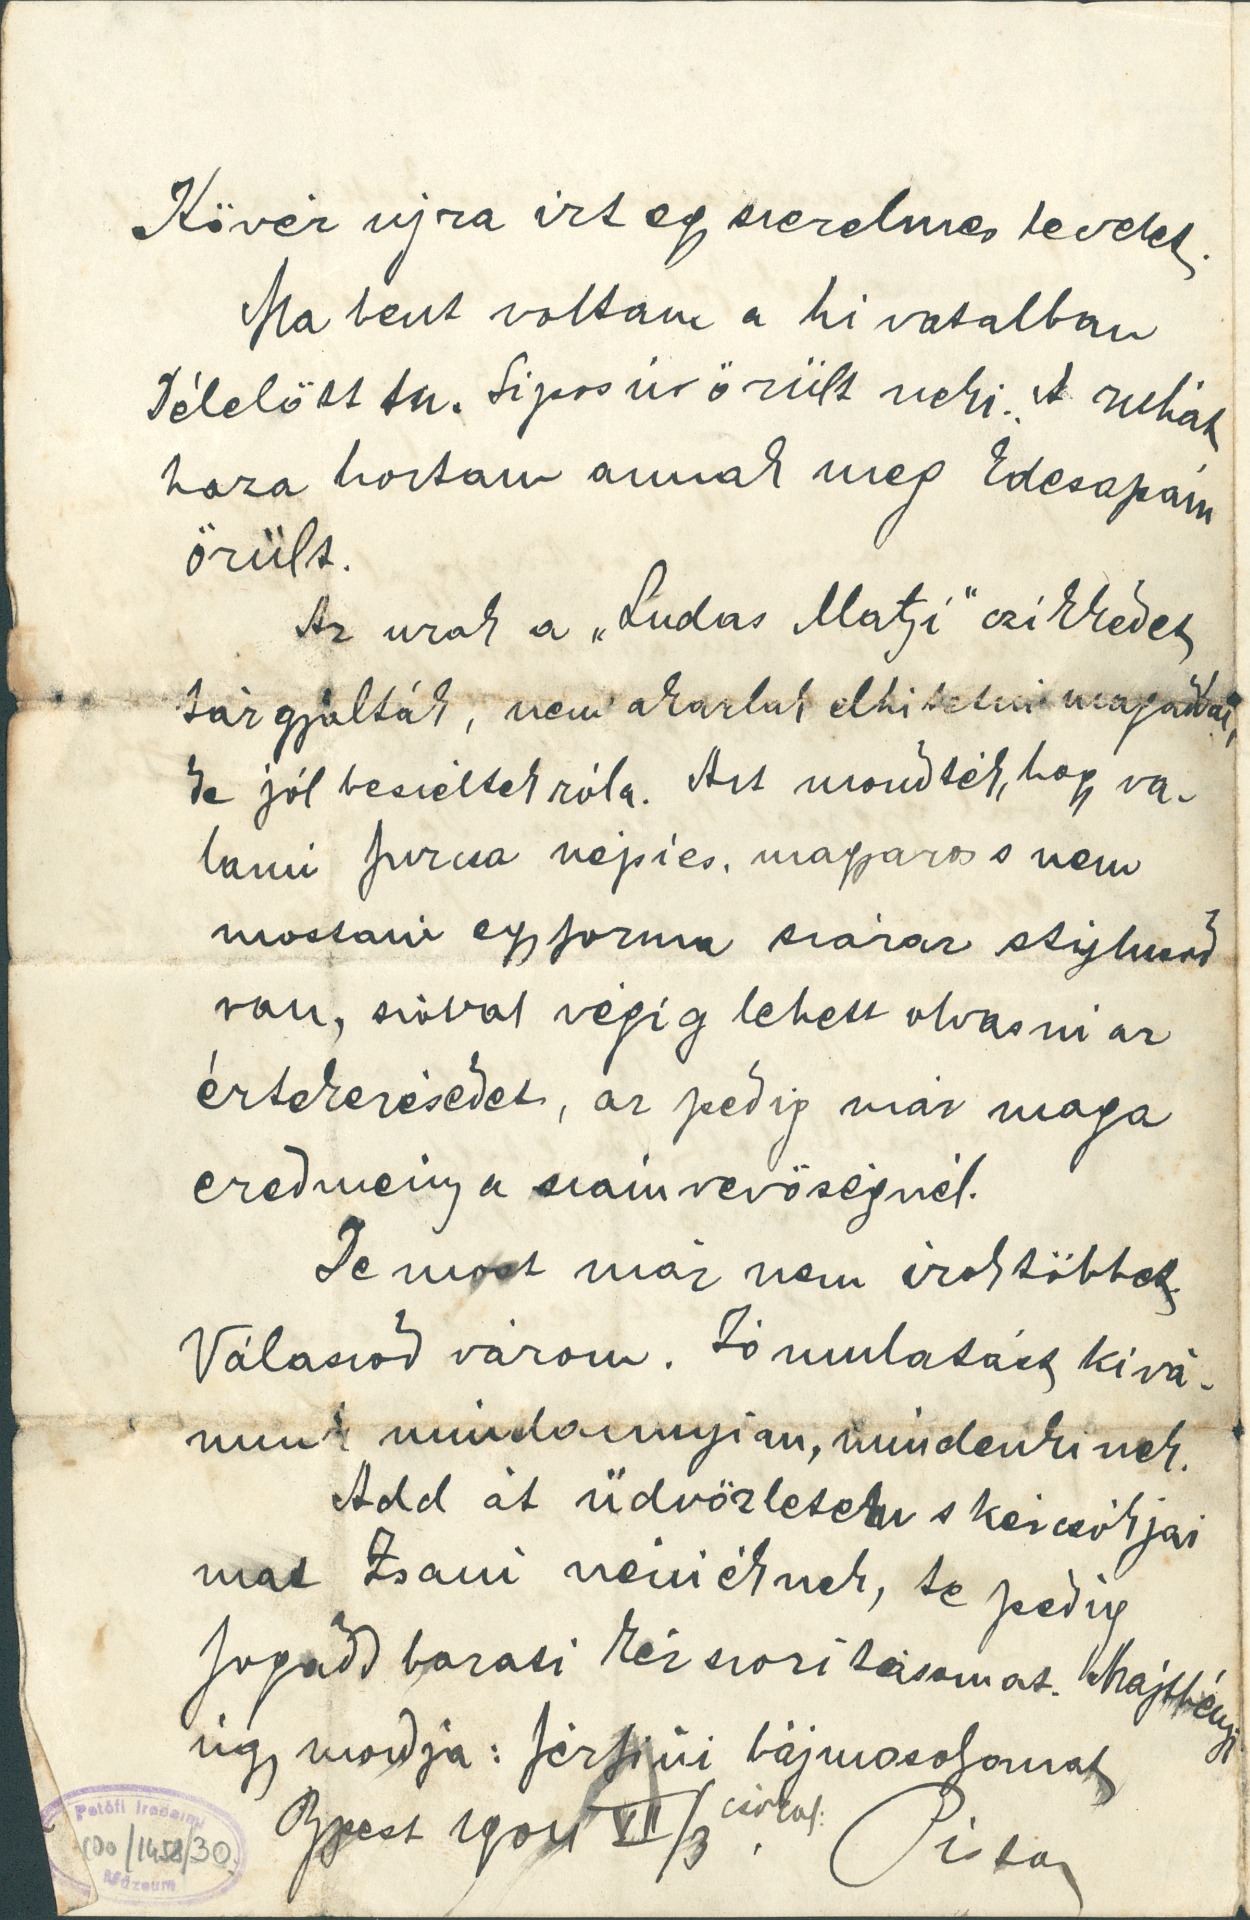 Kövér ujra irt egy szerelmes levelet.
Ma bent voltam a hivatalban
Délelőtt Sipos úr örült neki. A ruhát
haza hoztam annak meg Edesapám
örült.
Az urak a „Ludas Matyi" czikkedet
tárgyalták, nem akarták elhitetni magadval,
de jól beszéltek róla. Azt mondták, hogy va-
lami furcsa népies, magyaros s nem
mostani egyforma száraz stylusod
van, szóval végig lehett olvasni az
értekezésedet, az pedig már maga
eredmény a számvevőségnél.
De most már nem irok többet
Válaszod várom. Jó mulatást kivá-
nunk mindannyian, mindenkinek.
Add át üdvözletem s kézcsókjai
mat Zsani néniéknek, te pedig
fogadd baráti kézszoritásomat. Majthényi
úgy mondja: férfiúi bájmosolomat
csókol.
Bpest 1904 VII/3. Pista
Petőfi Irodalmi
100/1458/30.
Múzeum